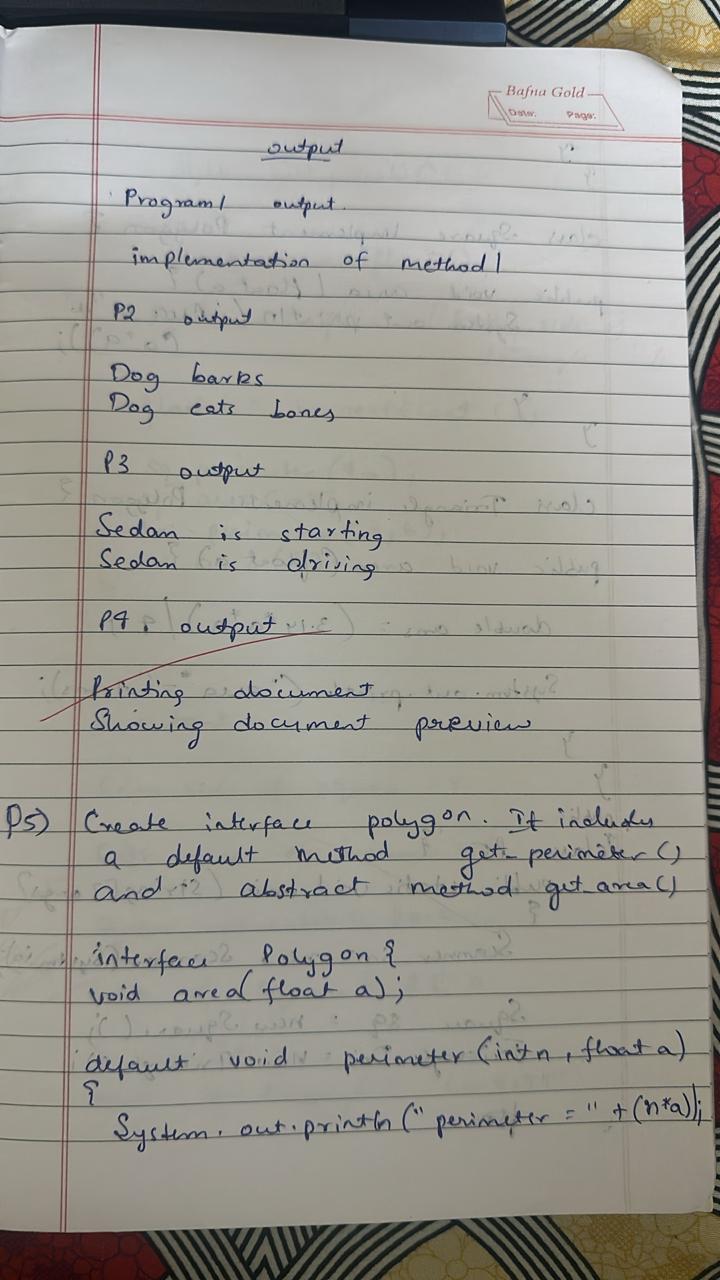 Bafna Gold
Date: Page:
output
Program 1 output.
implementation of method 1
P2 output
Dog barks
Dog eats bones
P3 output
Sedan is starting
Sedan is driving
P4. output
Printing document
Showing document preview
P5) Create interface polygon. It includes
a default method get_perimeter ()
and abstract method get_area()
interface Polygon {
void area( float a);
default void perimeter (int n, float a)
{
System.out.println (" perimeter = " + (n*a));